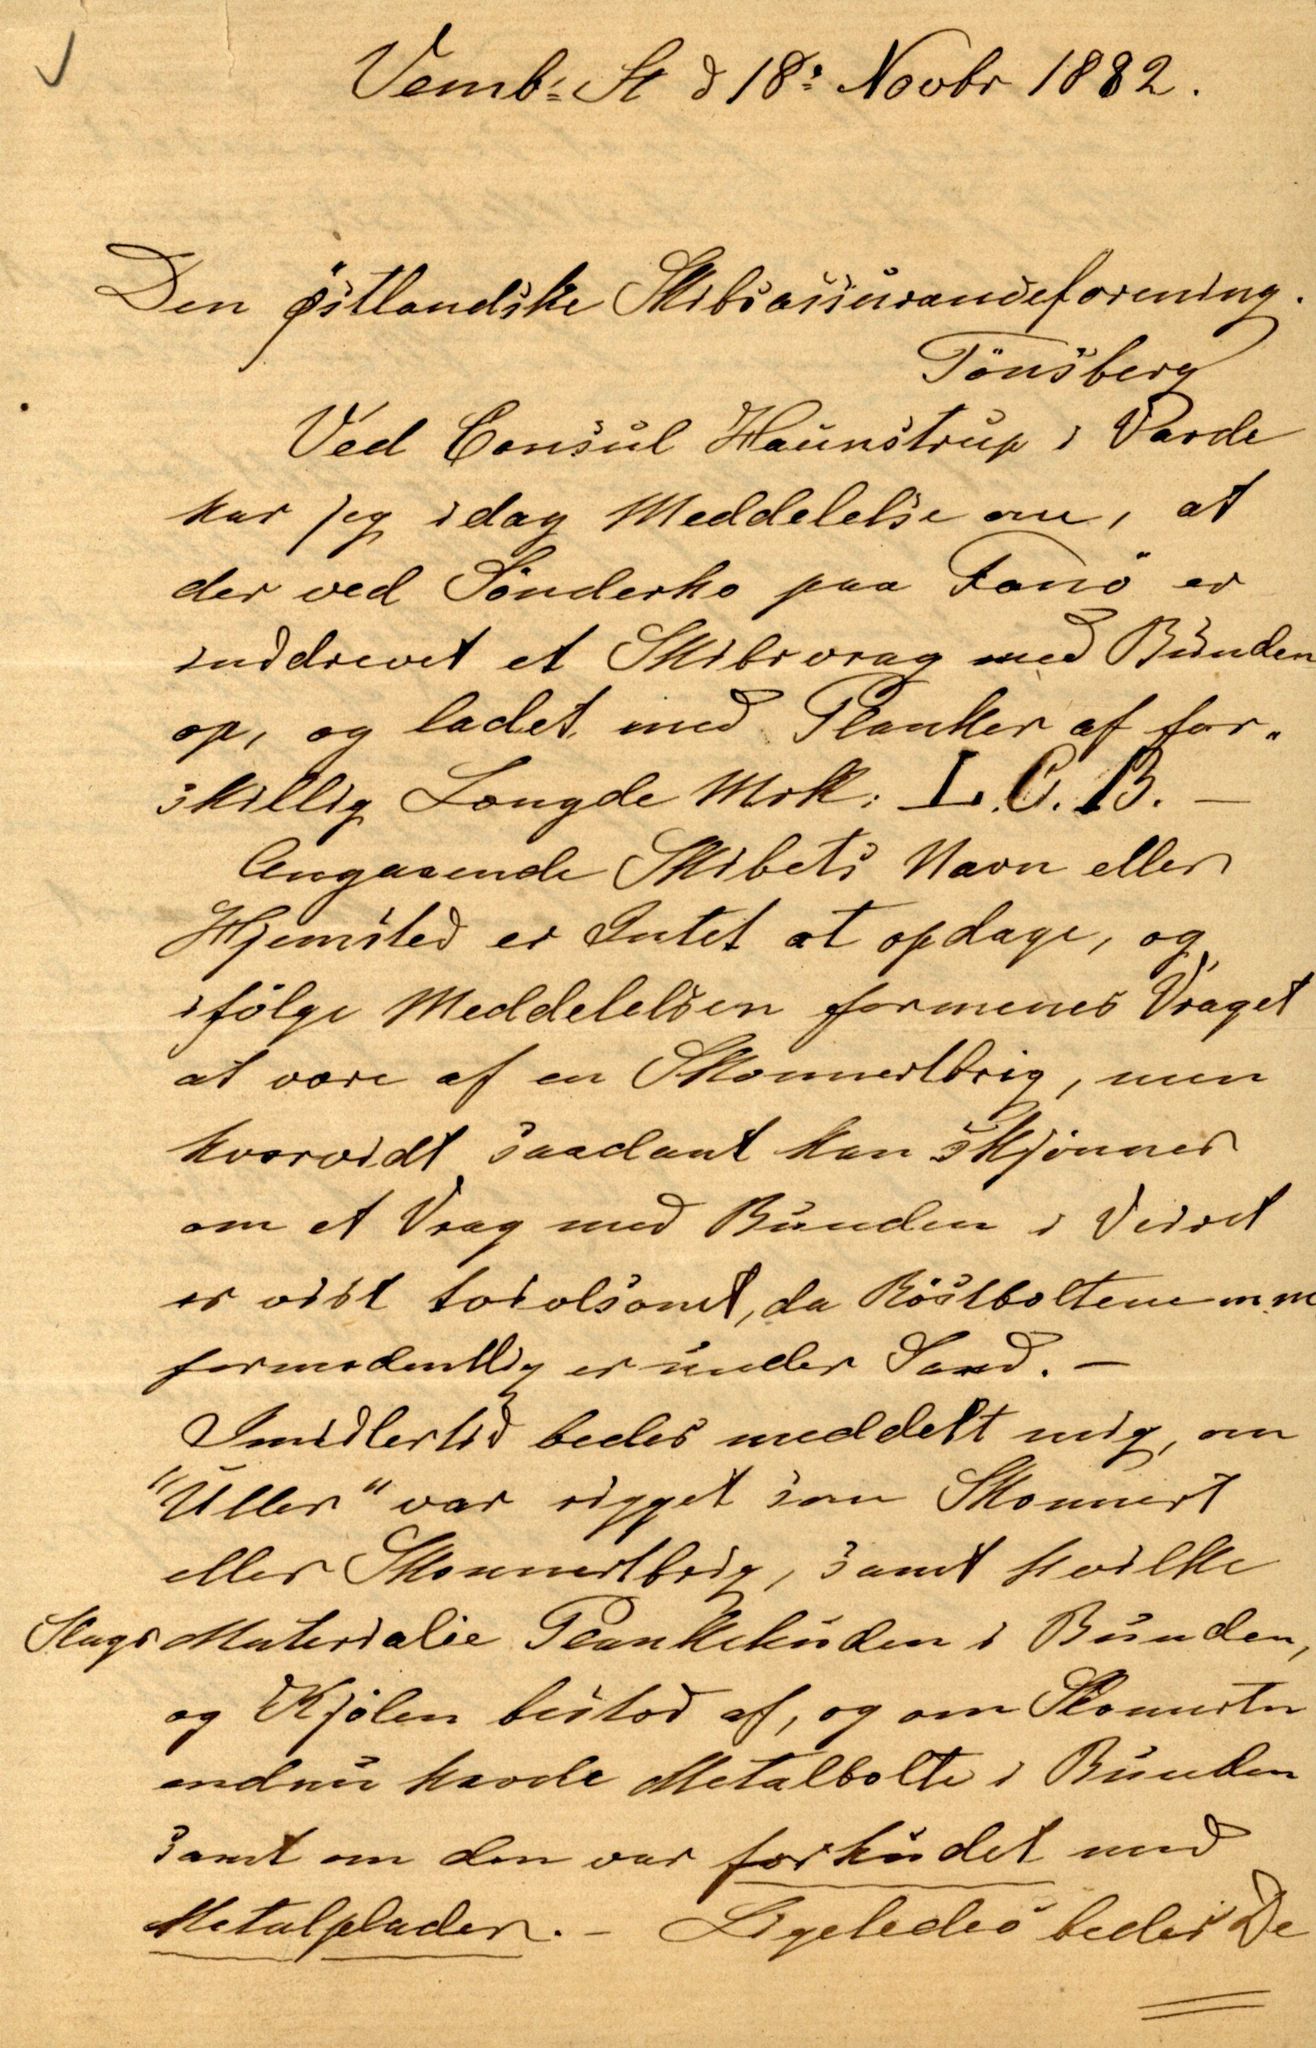 Vemb: St d 18: Novbr 1882.
Den østlandske Skibsassuranceforening.
Tönsberg
Ved Consul Haunstrup i Varde
har jeg idag Meddelelse om, at
der ved Sönderho paa Fanö er
inddrevet et Skibsvrag med Bunden
op, og ladet med Planker af for-
skillig Længde Mrk: L. C. B. —
Angaaende Skibets Navn eller
Hjemsted er Intet at opdage, og
ifölge Meddelelsen formenes Vraget
at være af en Skonnertbrig, men
hvorvidt saadant kan skjönnes
om et Vrag med Bunden i Veiret
er vist tvivlsomt, da Röstboltene m.m
formodentlig er under Sand. —
Imidlertid bedes meddelt mig, om
"Uller" var rigget som Skonnert
eller Skonnertbrig, samt hvilke
Slags Materialie Plankehuden i Bunden,
og Kjölen bestod af, og om Skonnerten
endnu havde Metalbolte i Bunden
samt om den var forhudet med
Metalplader. — Ligeledes bedes De